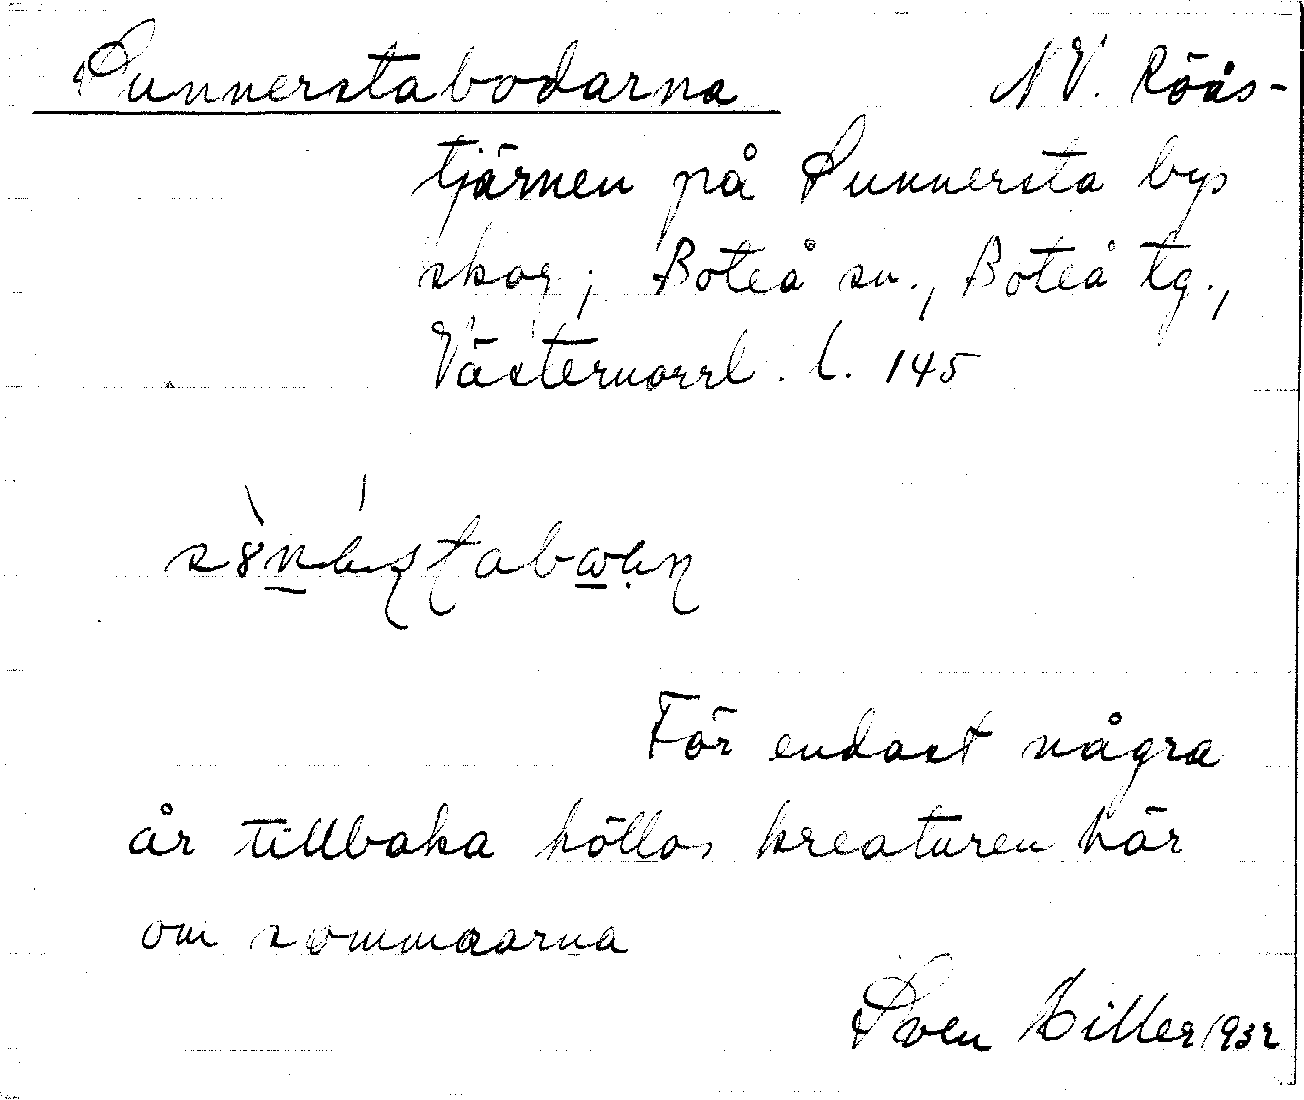 Sunnerstabodarna NV. Röås-
tjärnen på Sunnersta bys
skog, Boteå sn., Boteå tg.,
Västernorrl. l. 145
För endast några
år tillbaka höllos kreaturen här
om sommaarna
Sven Hiller 1932